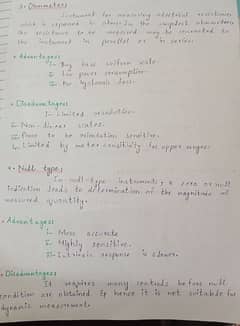 3. Ohmmeters
Instrument for measuring electrical resistance
which is expressed in ohms. In the simplest ohmmeters
the resistance to be measured may be connected to
the instrument in parallel or in series.
• Advantages
1- Buy have uniform scale.
2- Low power consumption
3- No hysteresis loss.
• Disadvantages
1- Limited
2- Non-linear scales.
3- Prone to be sensitive.
4- Limited by meter sensitivity for upper ranges
4. Null type:
In null-type instruments, a zero or null
indication leads to determination of the magnitude of
measured quantity.
• Advantages
1- More accurate.
2- Highly sensitive.
3- Intrinsic response is slower.
• Disadvantages
It requires many controls before null
condition are obtained & hence it is not suitable for
dynamic measurements.